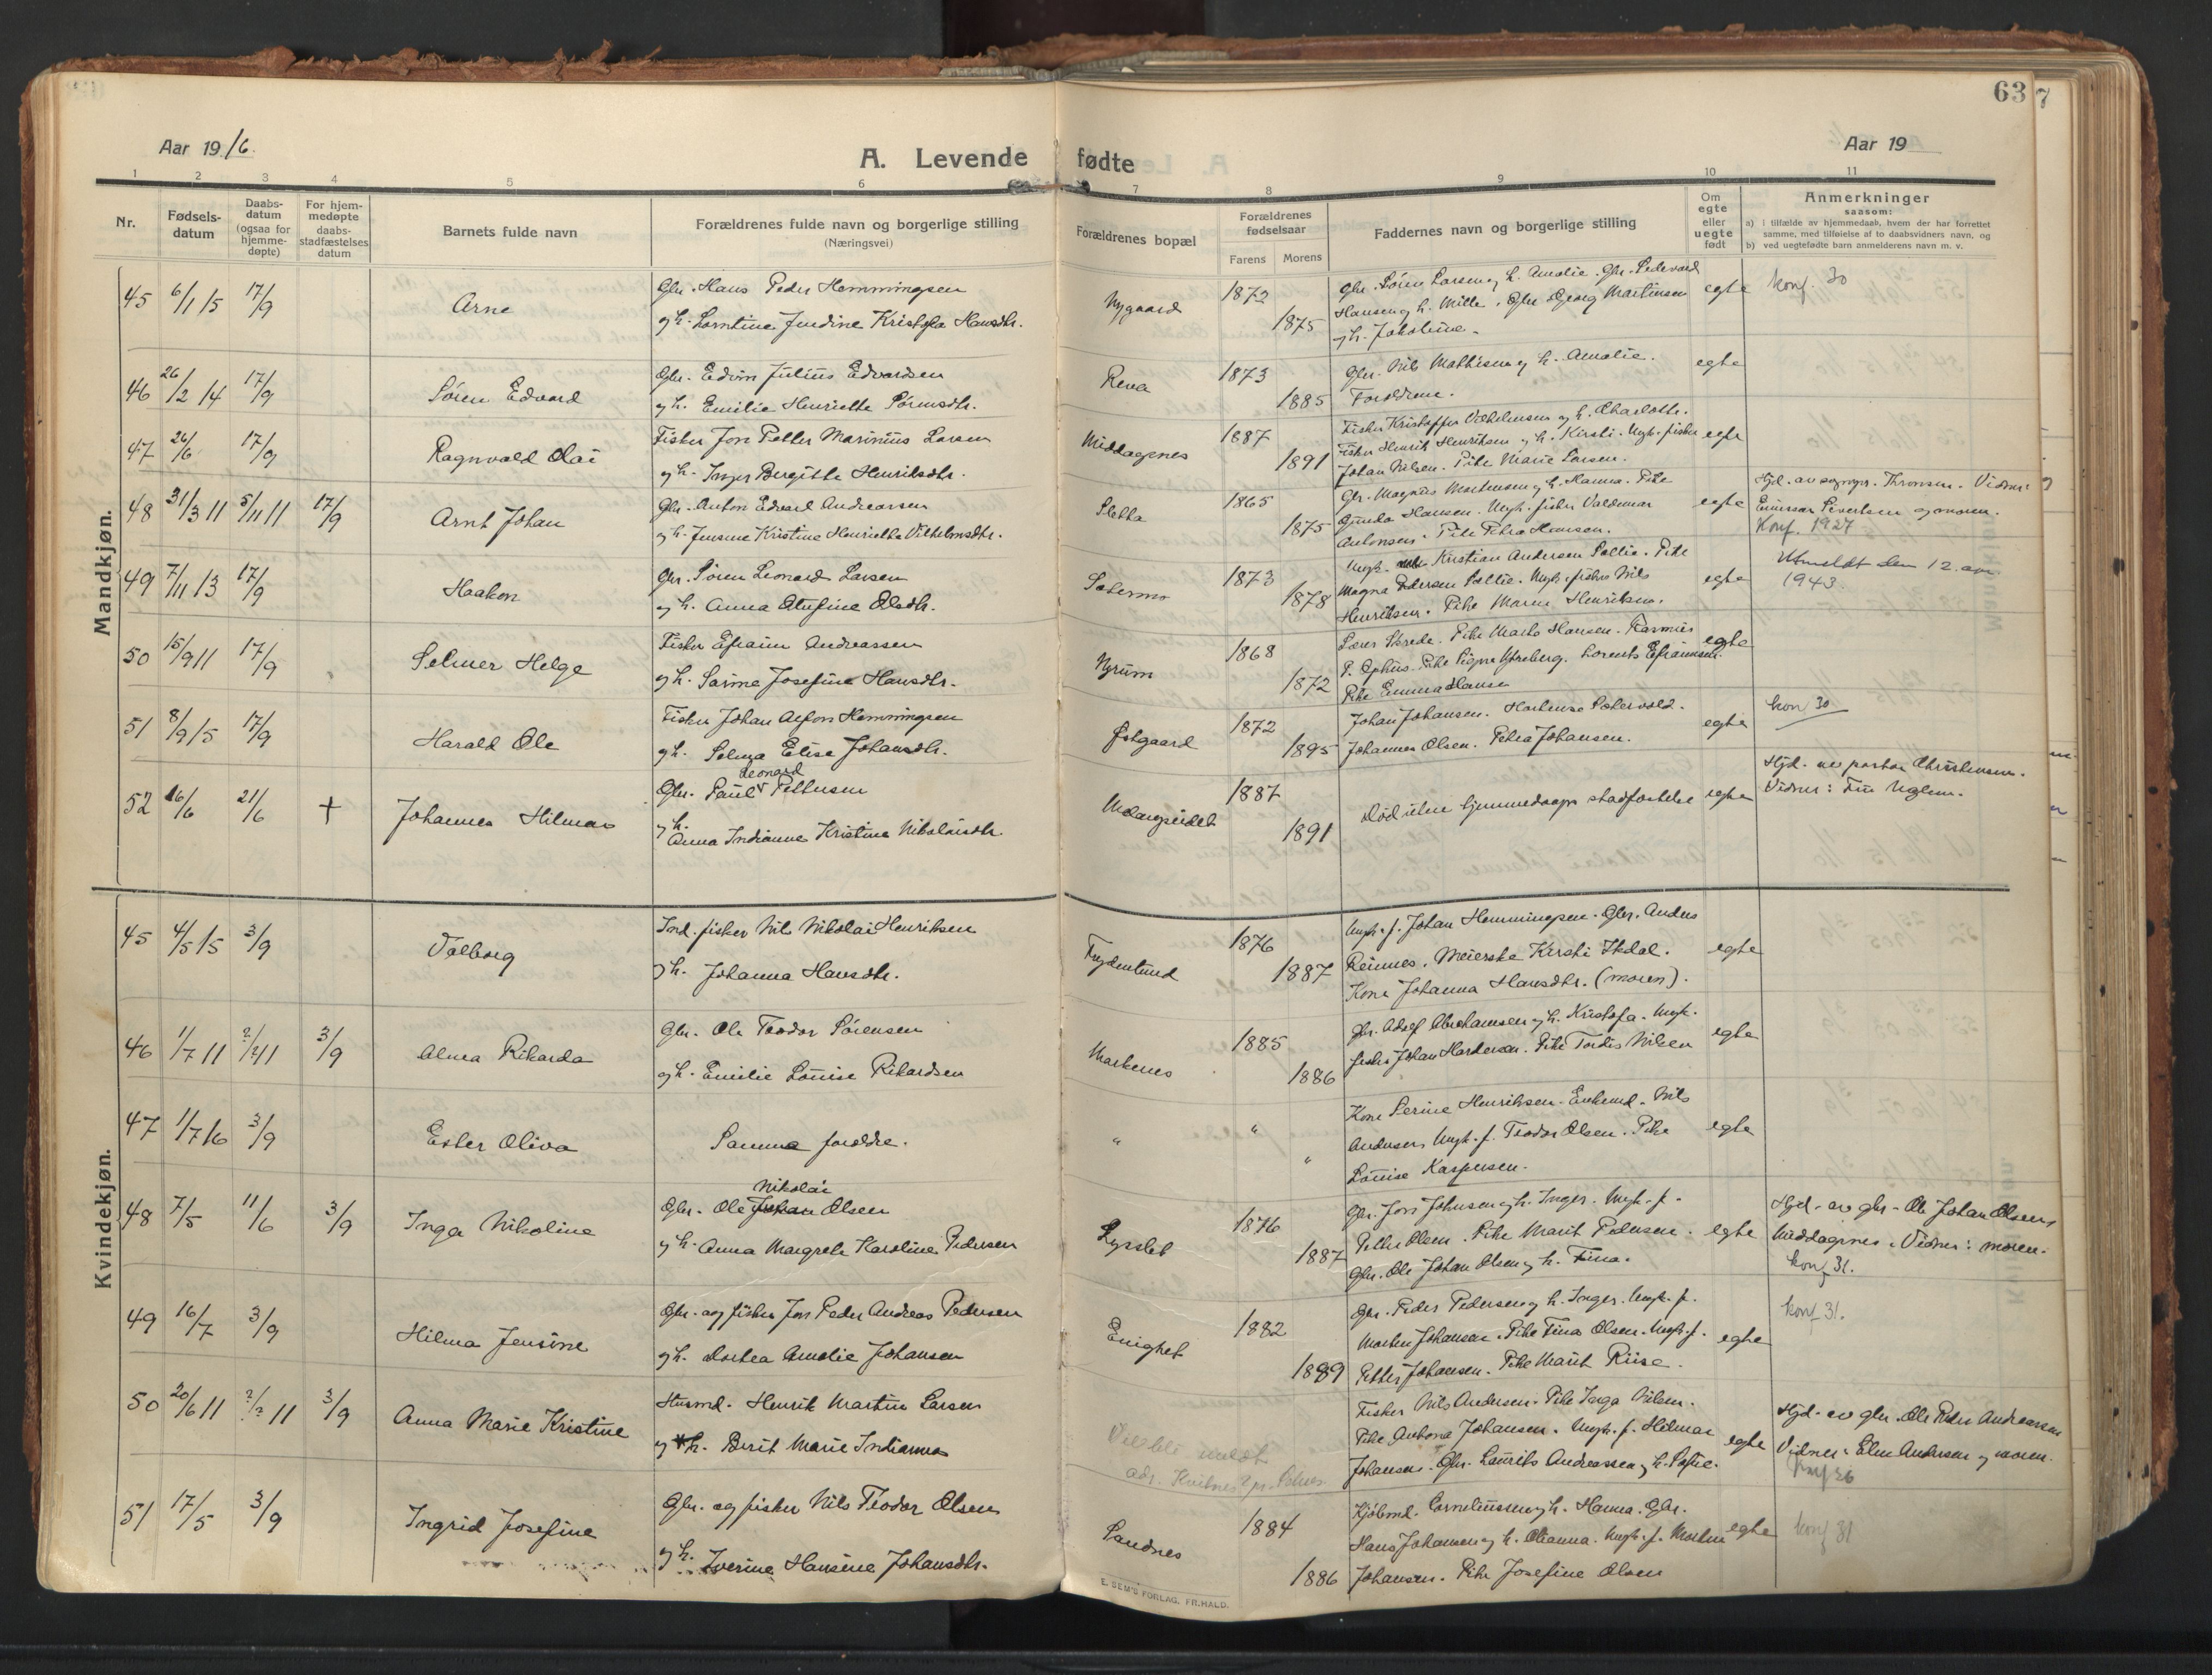 63
7
Aar 19 16.
A. Levende fødte
Aar 19
1 2 3 4 5 6 7 8 9 10 11
Nr.
Fødsels-
datum
Daabs-
datum
(ogsaa for
hjemme-
døpte)
For hjem-
medøpte
daabs-
stadfæstelses
datum
Barnets fulde navn
Forældrenes fulde navn og borgerlige stilling
(Næringsvei)
Forældrenes bopæl
Forældrenes
fødselsaar
Farens Morens
Faddernes navn og borgerlige stilling
Om
egte
eller
uegte
født
Anmerkninger
saasom:
a) i tilfælde av hjemmedaab, hvem der har forrettet
samme, med tilføielse af to daabsvidners navn, og
b) ved uegtefødte barn anmelderens navn m. v.
Mandkjøn.
45 6/1 15 17/9 Arne
Gbr. Hans Peder Hemmingsen
og h. Lorntine Jendine Kristofa Hansdtr.
Nygaard 1872 1875
Gbr. Sören Larsen og h. Amalie. Gbr. Pedevard
Hansen og h. Mille. Gbr Georg Martinsen
og h. Jakobine.
egte konf. 30
46 26/2 14 17/9 Sören Edvard
Gbr. Edvin Julius Edvardsen
og h. Emilie Henriette Sörensdtr.
Reva 1873 1885
Gbr. Nils Mathisen og h. Amalie.
Forældrene.
egte
47 26/6 17/9 Ragnvald Olai
Fisker Jon Petter Marinius Larsen
og h. Inger Bergitte Henriksdtr.
Middagsnes 1887 1891
Fisker Kristoffer Vilhelmsen og h. Charlotte.
Fisker Henrik Henriksen og h. Kirsti. Ungk. fisker
Johan Nilsen. Pike Marie Larsen.
egte
48 31/3 11 5/11 11 17/9 Arnt Johan
Gbr. Anton Edvard Andreassen
og h. Jensine Kristine Henriette Vilhelmsdtr.
Sletta 1865 1875
Gbr. Magnus Mortensen og h. Hanna. Pike
Gunda Hansen. Ungk. fisker Valdemar
Antonsen. Pike Petra Hansen.
egte
Hjd. av sognepr. Thronsen. Vidner:
Emissær Sivertsen og moren.
Konf. 1927
49 7/11 13 17/9 Haakon
Gbr. Sören Leonard Larsen
og h. Anna Olufine Olsdtr.
Solermo 1873 1878
Ungk. Kristian Andersen Sollie. Pike
Magna Pedersen Sollie. Ungk. fisker Nils
Henriksen. Pike Maren Henriksen.
egte
Utmeldt den 12. apr
1943.
50 15/9 11 17/9 Selmer Helge
Fisker Efraim Andreassen
og h. Sarine Josefine Hansdtr.
Nyrum 1868 1872
Lærer Skrede. Pike Marta Hansen. Rasmus
P. Ophus. Pike Signe Myreberg. Lorents Efraimsen.
Pike Emma Hansen
egte
51 8/9 15 17/9 Harald Ole
Fisker Johan Alfon Hemmingsen
og h. Selma Elise Johansdtr.
Østgaard 1872 1895
Johan Johansen. Hartense Sætervold.
Johannes Olsen. Petra Johansen.
egte kon 30
52 16/6 21/6 + Johannes Hilmar
Leonard
Gbr. Paul Pettersen
og h.
Anna Indianna Kristine Nikolaisdtr.
Malangseidet 1887 1891
Död uten hjemmedaaps stadfæstelse egte
Hjd. av pastor Christensen.
Vidner: Fru Uglem.
Kvindekjøn.
45 4/5 15 3/9 Valborg
Ind. fisker Nils Nikolai Henriksen
og h. Johanna Hansdtr.
Frydenlund 1876 1887
Ungk. f. Johan Hemmingsen. Gbr. Anders
Reinnes. Meierske Kirsti Ihdal.
Kone Johanna Hansdtr. (moren).
egte
46 1/7 11 ?/? 11 3/9 Alma Rikarda
Gbr. Ole Teodor Sörensen
og h. Emilie Louise Rikardsen
Markenes 1885 1886
Gbr. Adolf Abrahamsen og h. Kristofa. Ungk.
fisker Johan Hardersen. Pike Tordis Nilsen
egte
47 1/7 16 3/9 Ester Oliva
Samme forældre.
" " "
Kone Serine Henriksen. Enkemd. Nils
Andersen, Ungk. f. Teodor Olsen. Pike
Louise Kaspersen.
egte
48 7/5 11/6 3/9 Inga Nikoline
Nikolai
Gbr. Ole Johan Olsen
og h. Anna Margrete Karoline Pedersen
Lysslet 1876 1887
Gbr. Jon Johnsen og h. Inger. Ungk. f.
Petter Olsen. Pike Marit Pedersen.
Gbr. Ole Johan Olsen og h. Fina.
egte
Hjd. av gbr. Ole Johan Olsen
Middagsnes. Vidner: moren.
konf 31.
49 16/7 3/9 Hilma Jensine
Gbr. og fisker Jon Peder Andreas Pedersen
og h. Dortea Amalie Johansen
Enighet 1882 1889
Gbr. Peder Pedersen og h. Inger. Ungk. f.
Morten Johansen. Pike Fina Olsen. Ungk. f.
Petter Johansen. Pike Marit Riise.
egte konf 31.
50 20/6 11 ?/? 11 3/9 Anna Marie Kristine
Husmd. Henrik Martin Larsen
og h. Berit Marie Indianna
Vil bli meldt
Fisker Nils Andersen. Pike Inga Nilsen.
Pike Antona Johansen. Ungk. f. Hilmar
Johansen. Gbr. Laurits Andreassen og h. Sofie.
egte
Hjd. av gbr. Ole Peder Andreassen
Vidner: Elen Andersen og moren.
konf 26
51 17/5 3/9 Ingrid Josefine
Gbr. og fisker Nils Teodor Olsen
og h. Iverine Hansine Johansdtr.
Sandnes 1884 1886
Kjöbmd. Corneliussen og h. Hanna. Gbr.
Hans Johansen og h. Oleanna. Ungk. f. Morten
Johansen. Pike Josefine Olsen
egte konf 31
E. SEM'S FORLAG, FR.HALD.